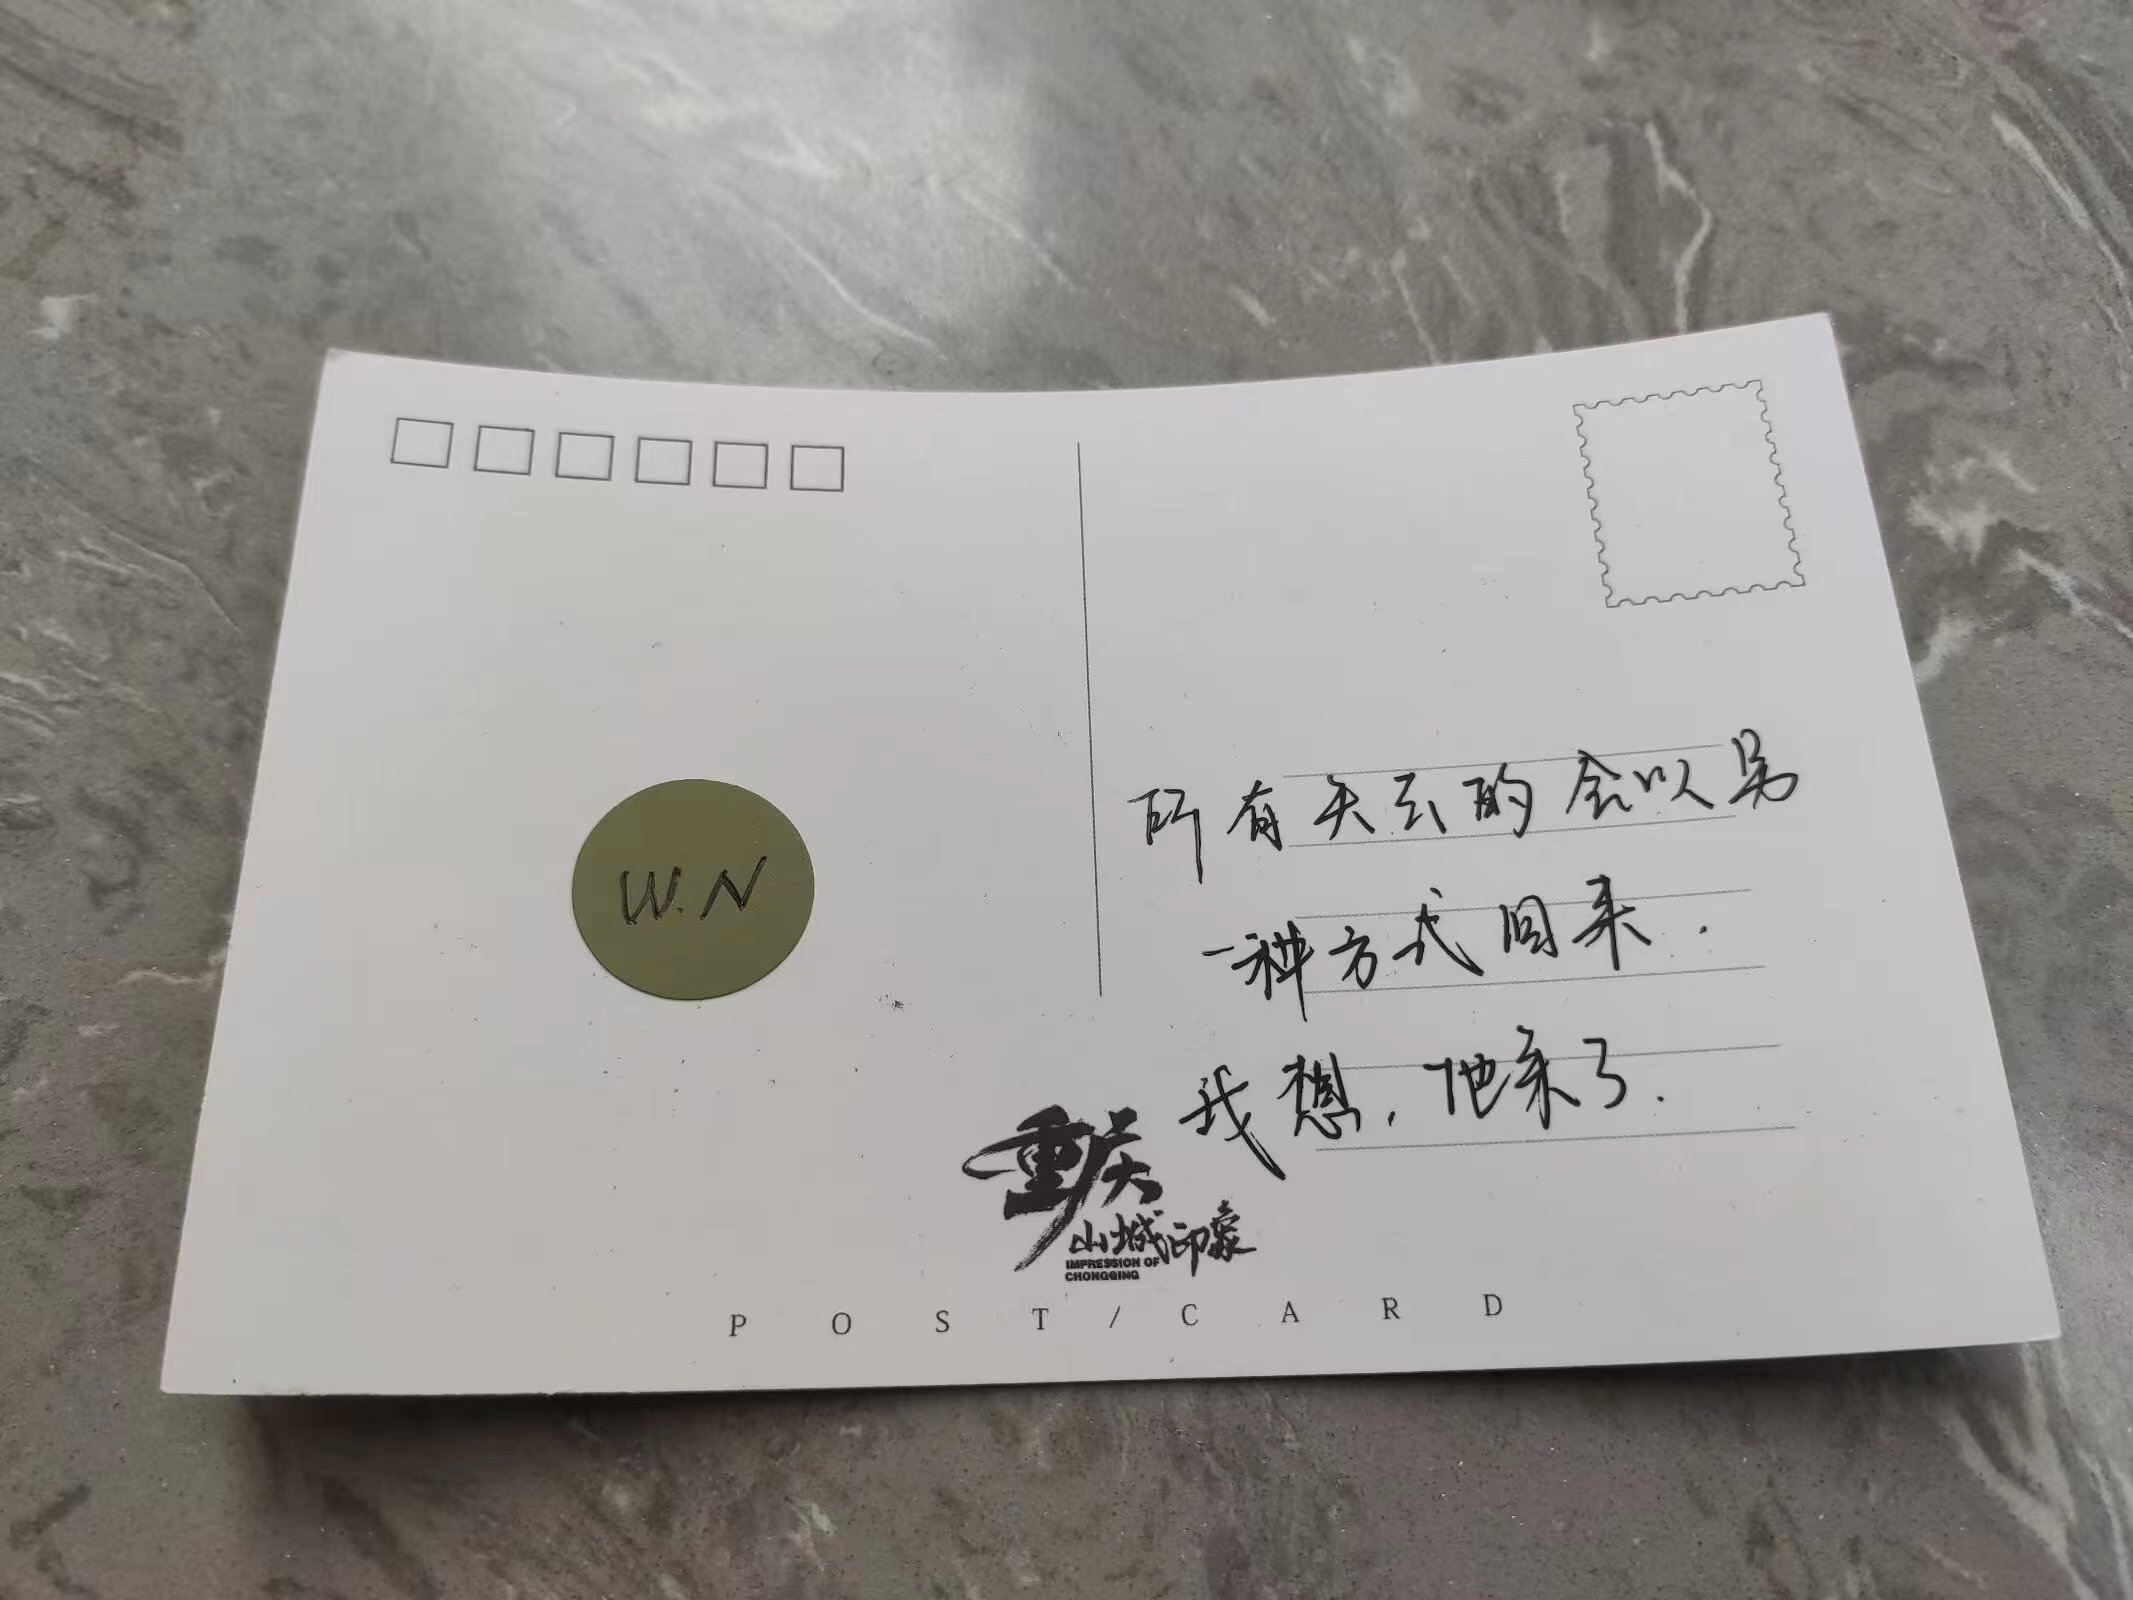 W.N
所有失去的会以另
一种方式回来.
我想,他来了.
重庆
山城印象
IMPRESSION OF
CHONGQING
POST/CARD